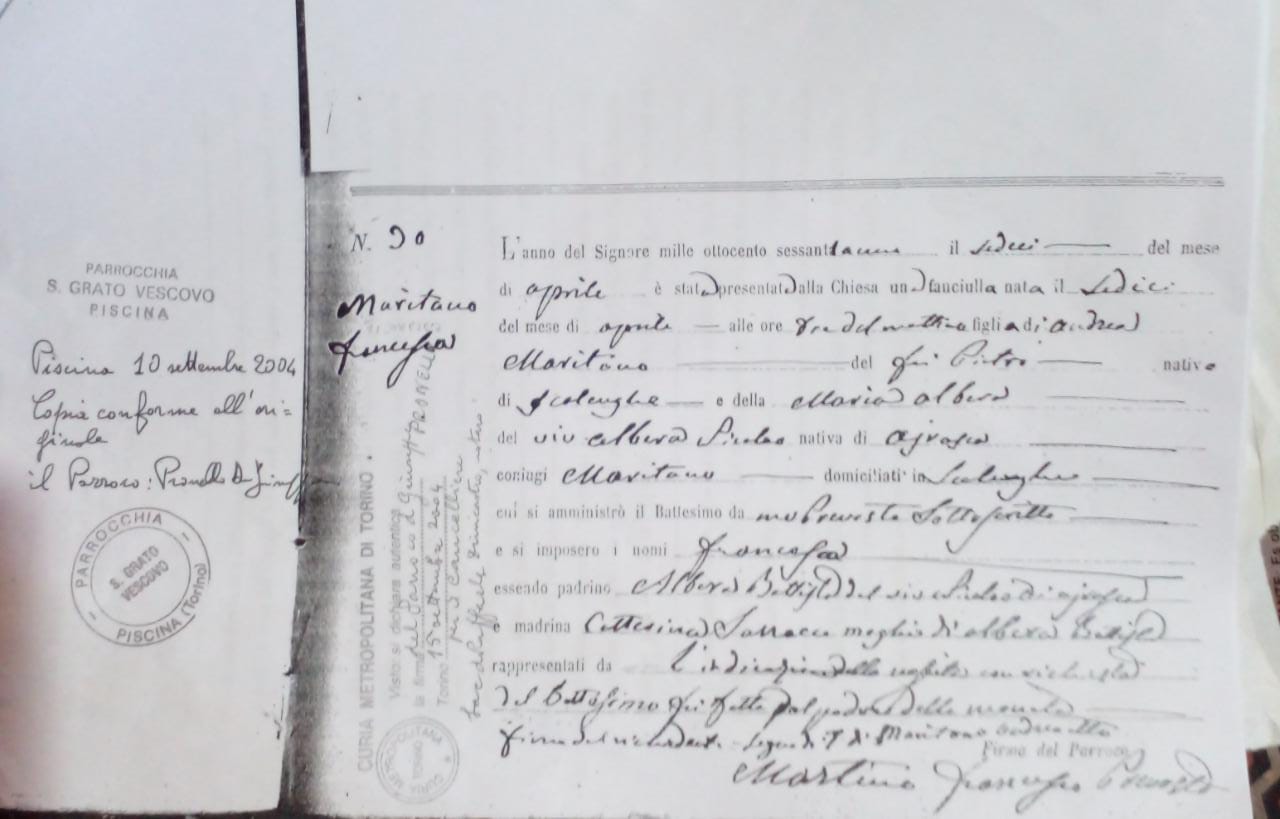 PARROCCHIA
S. GRATO VESCOVO
PISCINA
Piscina 10 settembre 2004
Copia conforme all'ori=
ginale
il Parroco:
PARROCCHIA
S. GRATO
VESCOVO
PISCINA (Torino)
CURIA METROPOLITANA DI TORINO
Visto: si dichiara autentica
la firma del Parroco d. Giuseppe PRONELLO
Torino 15 settembre 2004
per il Cancelliere
CURIA METROPOLITANA
TORINO
N. 30
Maritano
Francesca
L'anno del Signore mille ottocento sessant il sedici del mese
di aprile è stata presentata alla Chiesa una fanciulla nata il sedici
del mese di aprile alle ore tre del mattino figlia di Andrea
Maritano del fu Pietro nativo
di Scalenghe e della Maria Albera
del viv Albera nativa di
coniugi Maritano domiciliati in Scalenghe
cui si amministrò il Battesimo da me Prevosto Sottoscritto
e si imposero i nomi Francesca
essendo padrino Albera del viv di
e madrina Catterina moglie di Albera
rappresentati da L'indicazione della con richiesta
del Battesimo fu fatta dal padre della neonata
firma del richiedente Segno di Maritano Andrea
Firma del Parroco
Martino Francesco Prevosto